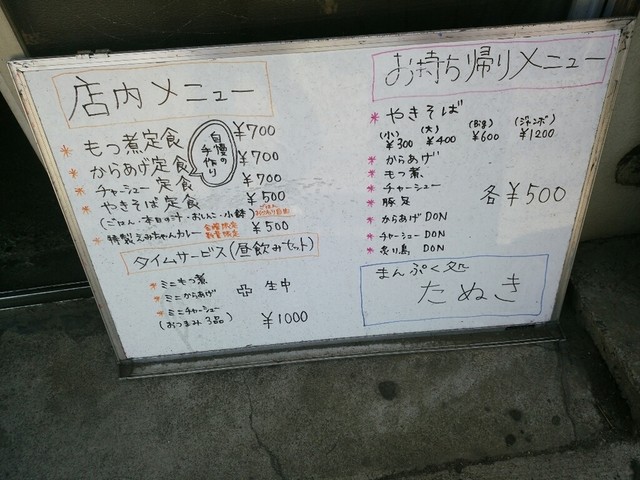 店内メニュー
* もつ煮定食 ¥700
* からあげ定食 ¥700
* チャーシュー定食 ¥700
* やきそば定食 ¥500
自慢の手作り
(ごはん・本日の汁・おしんこ・小鉢)
ごはん
* 特製えみちゃんカレー 金曜限定 数量限定 ¥500
タイムサービス(昼飲みセット)
* ミニもつ煮
* ミニからあげ
* ミニチャーシュー
(おつまみ3品)
+ 生中
¥1000
お持ち帰りメニュー
* やきそば
(小) (大) (Big) (ジャンボ)
¥300 ¥400 ¥600 ¥1200
* からあげ
* もつ煮
* チャーシュー
* 豚足
* からあげ DON
* チャーシュー DON
* 炙り鳥 DON
各¥500
まんぷく処
たぬき